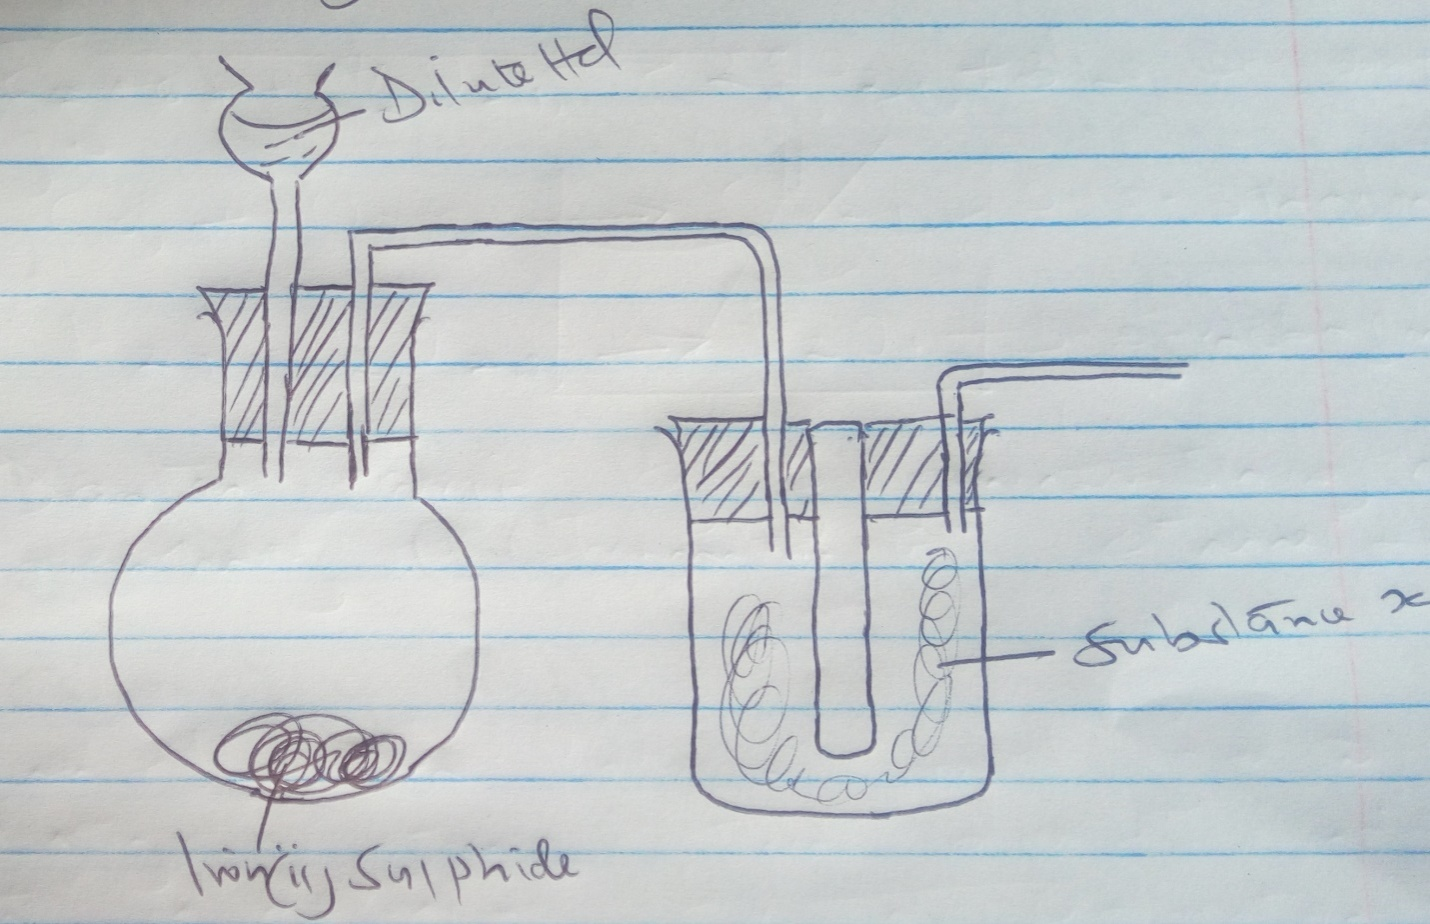 Dilute Hcl
Substance x
Iron(ii) Sulphide